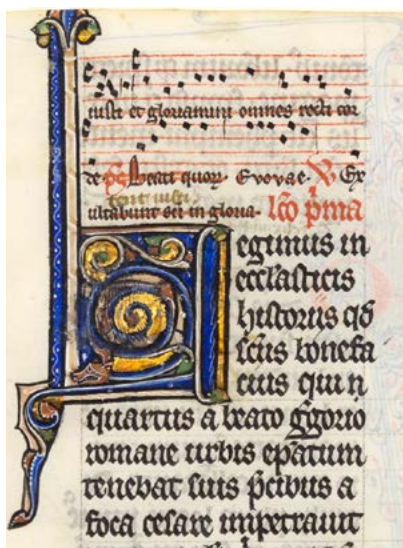 iusti et gloriamini omnes recti cor
de ps Beati quorum Evovae. V Ex
tent iusti
ultabunt sci in gloria. lco pma
Legimus in
ecclasticis
historiis qd
scus bonefa
cius qui n
quartus a beato ggorio
romane urbis epatum
tenebat suis pcibus a
foca cesare impetrauit